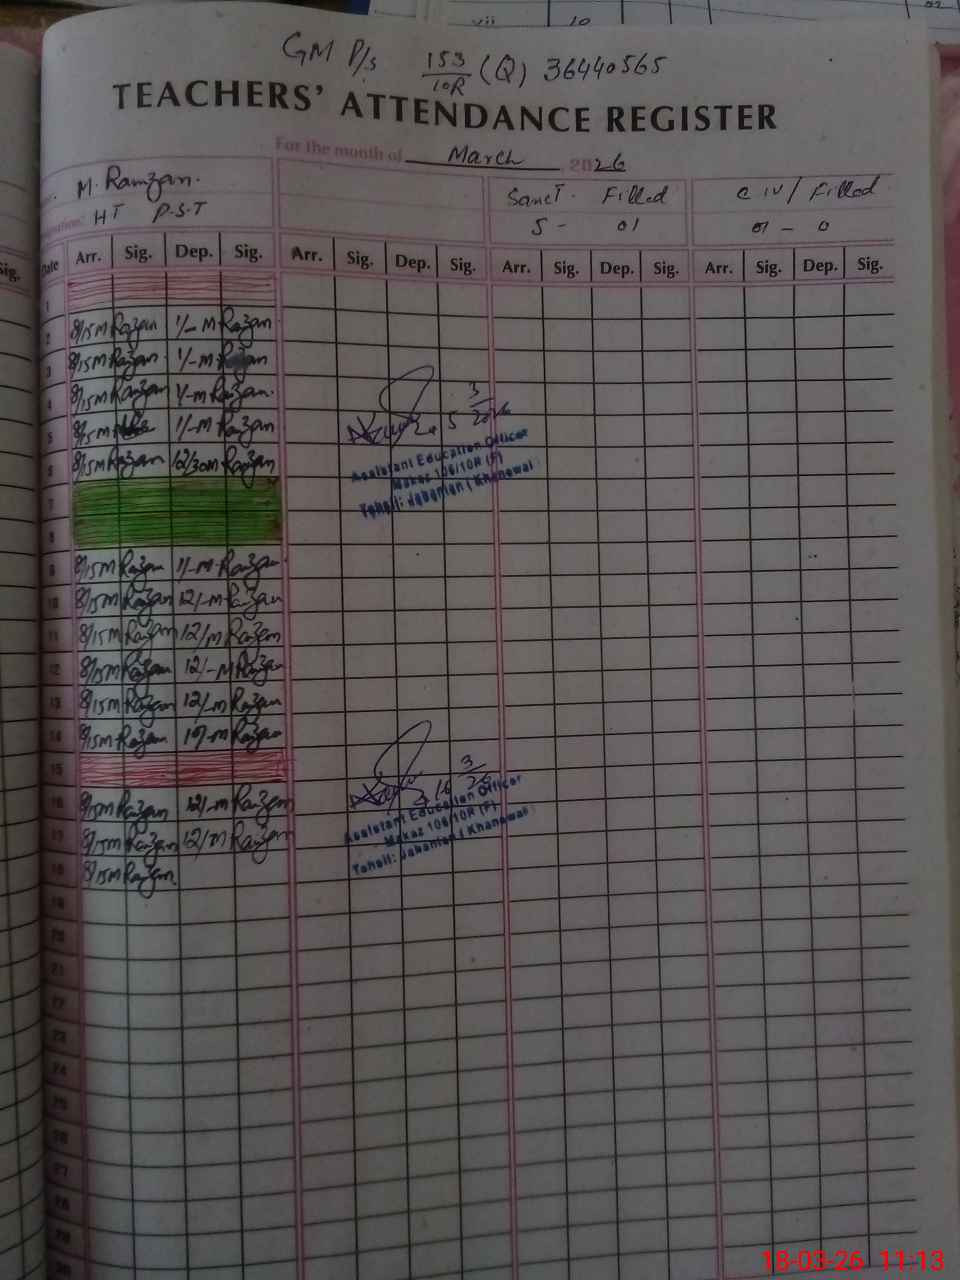 vii 10
GM P/s 153/10R (Q) 36440565
TEACHERS' ATTENDANCE REGISTER
For the month of March 2026
M. Ramzan. Sanct. Filled C IV / Filled
HT P.S.T 5 - 01 01 - 0
Date Arr. Sig. Dep. Sig. Arr. Sig. Dep. Sig. Arr. Sig. Dep. Sig. Arr. Sig. Dep. Sig.
Sig.
1
2 8/15 M Ramzan 1/- M Ramzan
3 8/15 M Ramzan 1/- M
4 8/15 M Ramzan 1/- M Ramzan
5 8/15 M 1/- M Ramzan
5 3/2026
6 8/15 M Ramzan 12/30 M Ramzan
Assistant Education Officer
Makaz 106/10R (F)
Tehsil: Jahanian ( Khanewal
7
8
9 8/15 M Ramzan 1/- M Ramzan
10 8/15 M Ramzan 12/- M Ramzan
11 8/15 M Ramzan 12/ M Ramzan
12 8/15 M Ramzan 12/- M Ramzan
13 8/15 M Ramzan 12/- M Ramzan
14 8/15 M Ramzan M Ramzan
15
16 8/15 M Ramzan 12/- M Ramzan
16 3/26
Assistant Education Officer
Makaz 106/10R (F)
Tehsil: Jahanian ( Khanewal
17 8/15 M Ramzan 12/ M Ramzan
18 8/15 M Ramzan
19
20
21
22
23
24
25
26
27
28
29
30
18-03-26 11:13